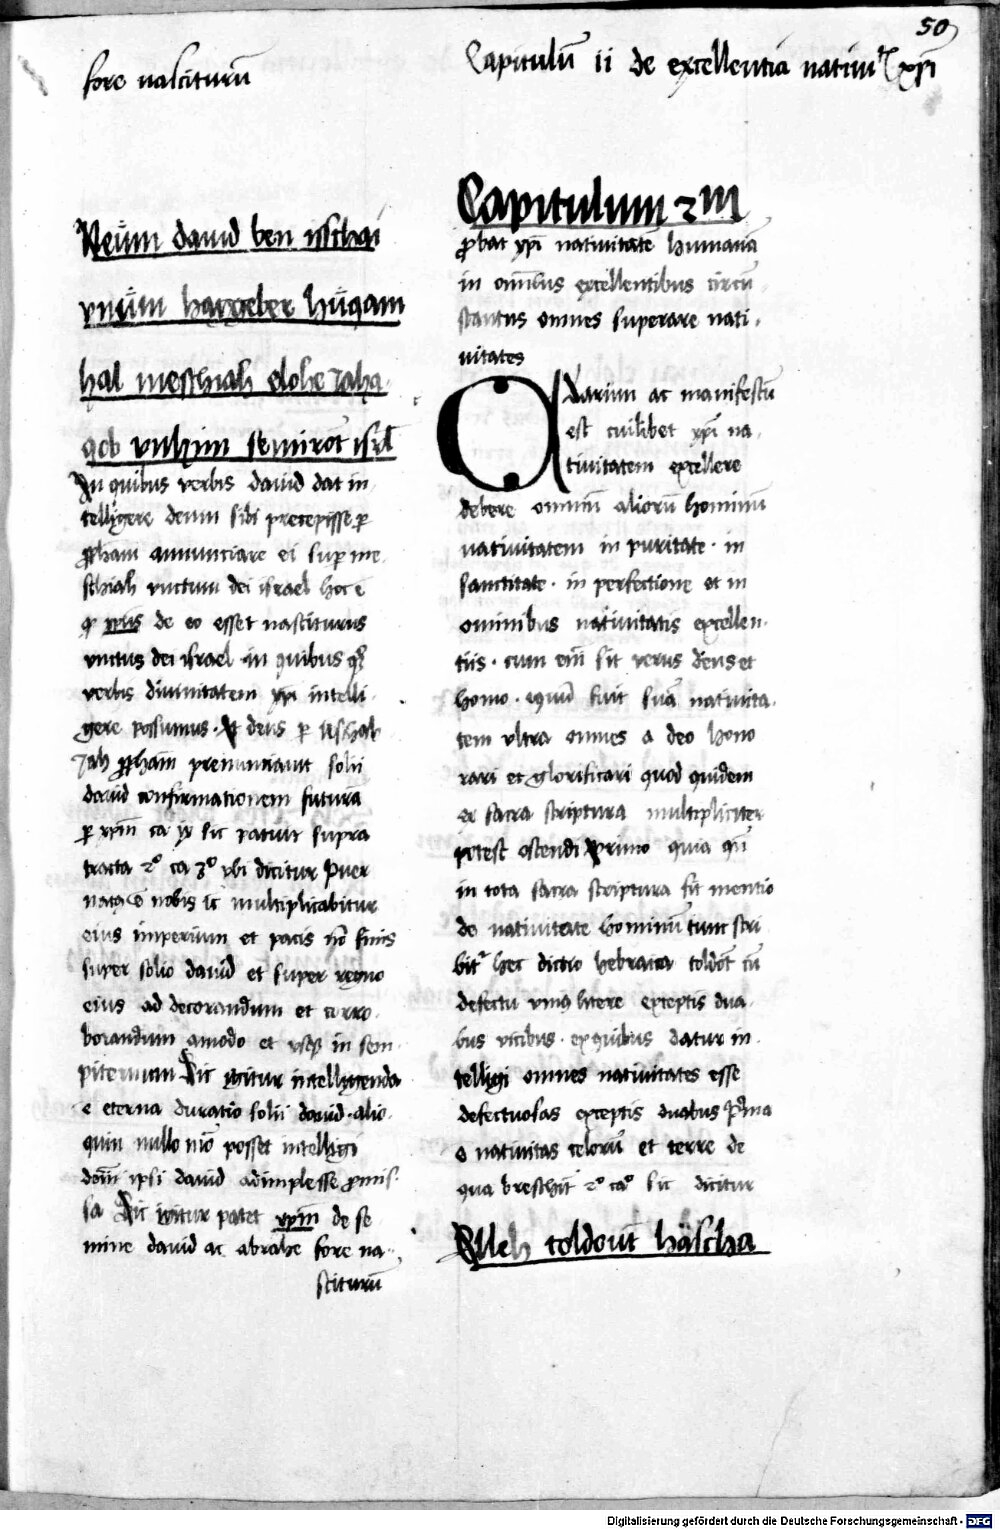 50
fore nasciturū
Capitulū ii de excellentia nativit xpi
Neum david ben isschai
unum haggeber huqam
hal meschiah elohe Jaha
qob unhim semirot isrl
In quibus verbis david dat in
telligere deum sibi precepisse p
pphām annunciare ei sup me
schiah unctum dei israel hoc ē
q xpūs de eo esset nasciturus
unctus dei israel in quibus qz
verbis divinitatem xpi intelli
gere possumus. Et deus p
Jah pphām prenunciavit solii
david confirmationem futurā
p xpm sic patuit supra
tracta 2º ca 3º ubi dicitur Puer
natus ē nobis multiplicabitur
eius imperium et pacis nō finis
super solio david et super regno
eius ad decorandum et corro
borandum amodo et usqz in sem
piternum Sic igitur intelligenda
e eterna duratio solii david alio
quin nullo mō posset intelligi
dom ipsi david adimplesse pmis
sa Sic igitur patet xpm de se
mine david ac abrahe fore na
sciturū
Capitulum 2m
pbat xpi nativitatē humanā
in omībus excellentibus circū
stantiis omnes superare nati
vitates
Clarum ac manifestū
est cuilibet xpi na
tivitatem excellere
debere omnium aliorū hominum
nativitatem in puritate. in
sanctitate. in perfectione et in
omnibus nativitatis excellen
tiis. cum enī sit verus deus et
homo. fuit suā nativita
tem ultra omnes a deo hono
rari et glorificari quod quidem
ex sacra scriptura multipliciter
potest ostendi Primo quia qn
in tota sacra scriptura fit mentio
de nativitate hominum tunc scri
bitr hec dictio hebraica toldot cū
defectu unius litere exceptis dua
bus vicibus. ex quibus datur in
telligi omnes nativitates esse
defectuosas exceptis duabus Prima
e nativitas celorū et terre de
qua breschit 2º caº sic dicitur
Elleh toldout hascha
Digitalisierung gefördert durch die Deutsche Forschungsgemeinschaft - DFG